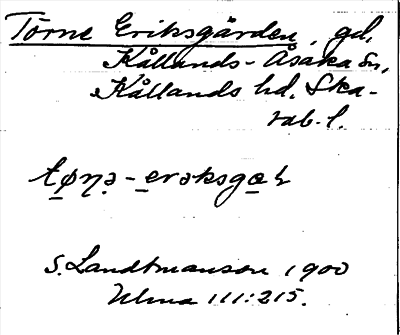 Törne Eriksgården, gd.
Kållands-Åsaka sn,
Kållands hd. Ska-
rab. l.
tø̠ɳə-e̠rəksga̠ɽ
S. Landtmanson 1900
Ulma 111:215.